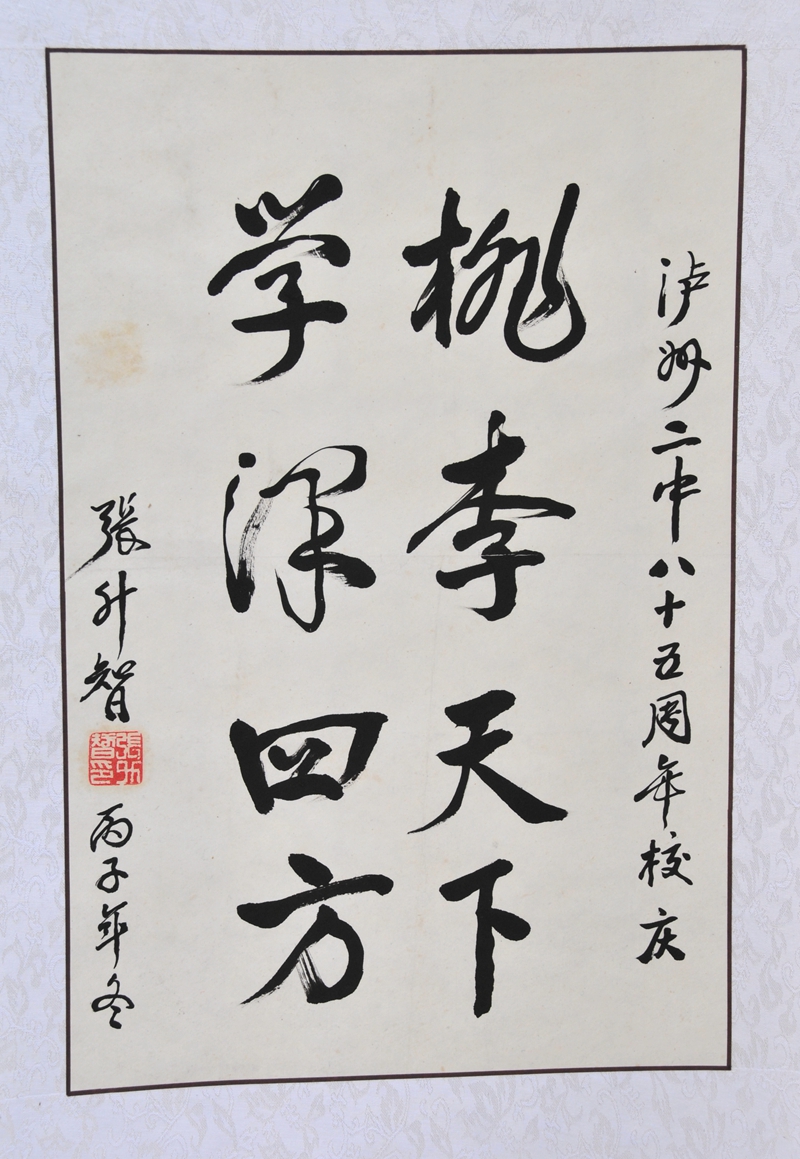 泸州二中八十五周年校庆
桃李天下
学泽四方
张升智
丙子年冬
張升智印